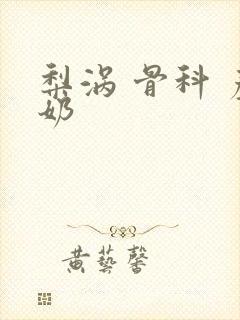 梨涡 骨科
奶
黄藝馨